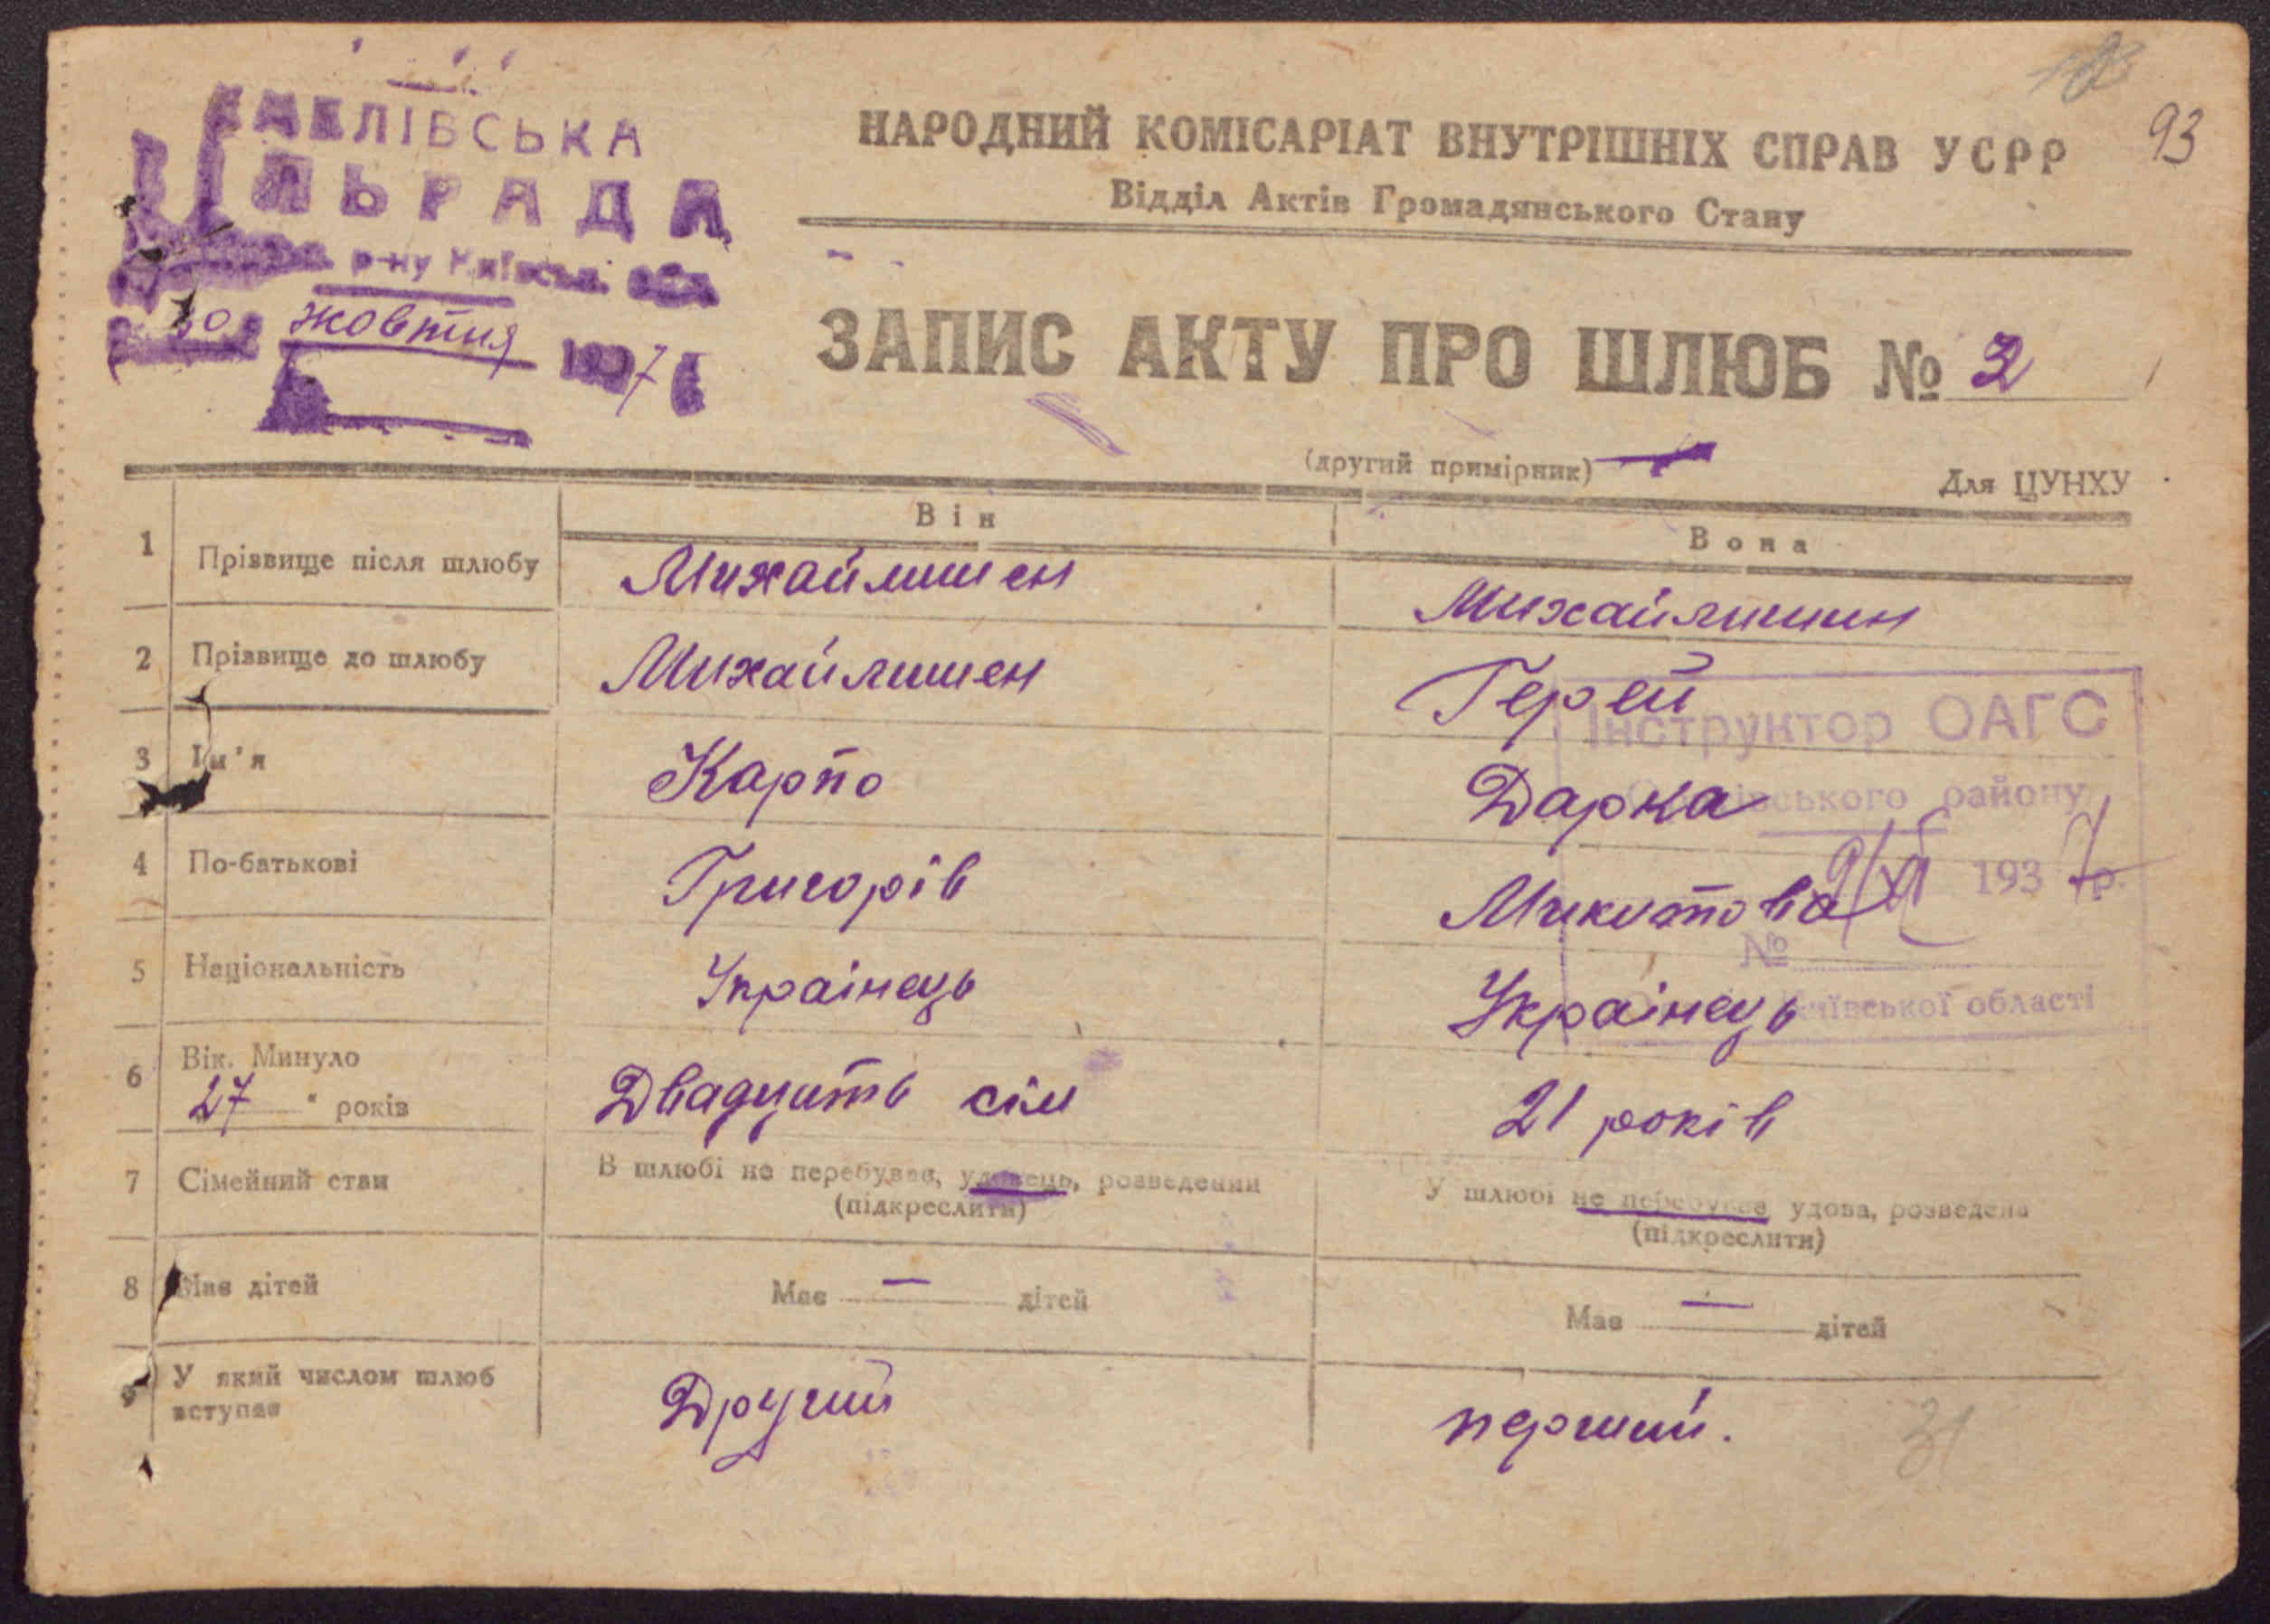 93
ЛІВСЬКА
ЛЬРАДА
р-ну Київськ. обл.
30 жовтня 1937
НАРОДНИЙ КОМІСАРІАТ ВНУТРІШНІХ СПРАВ УСРР
Відділ Актів Громадянського Стану
ЗАПИС АКТУ ПРО ШЛЮБ № 2
(другий примірник)
Для ЦУНХУ
Він
Вона
1 Прізвище після шлюбу Михайлишен Михайлишин
2 Прізвище до шлюбу Михайлишен Герей
Інструктор ОАГС
3 Ім'я Карпо Дарка
івського району
4 По-батькові Григорів Микитова
9/XI 1937 р.
№
5 Національність Українець Українець
Київської області
6 Вік. Минуло
27 років Двадцить сім 21 років
7 Сімейний стан В шлюбі не перебував, удовець, розведений
(підкреслити)
У шлюбі не перебував удова, розведена
(підкреслити)
8 Має дітей Має — дітей Має — дітей
У який числом шлюб
вступає Другий перший.
31